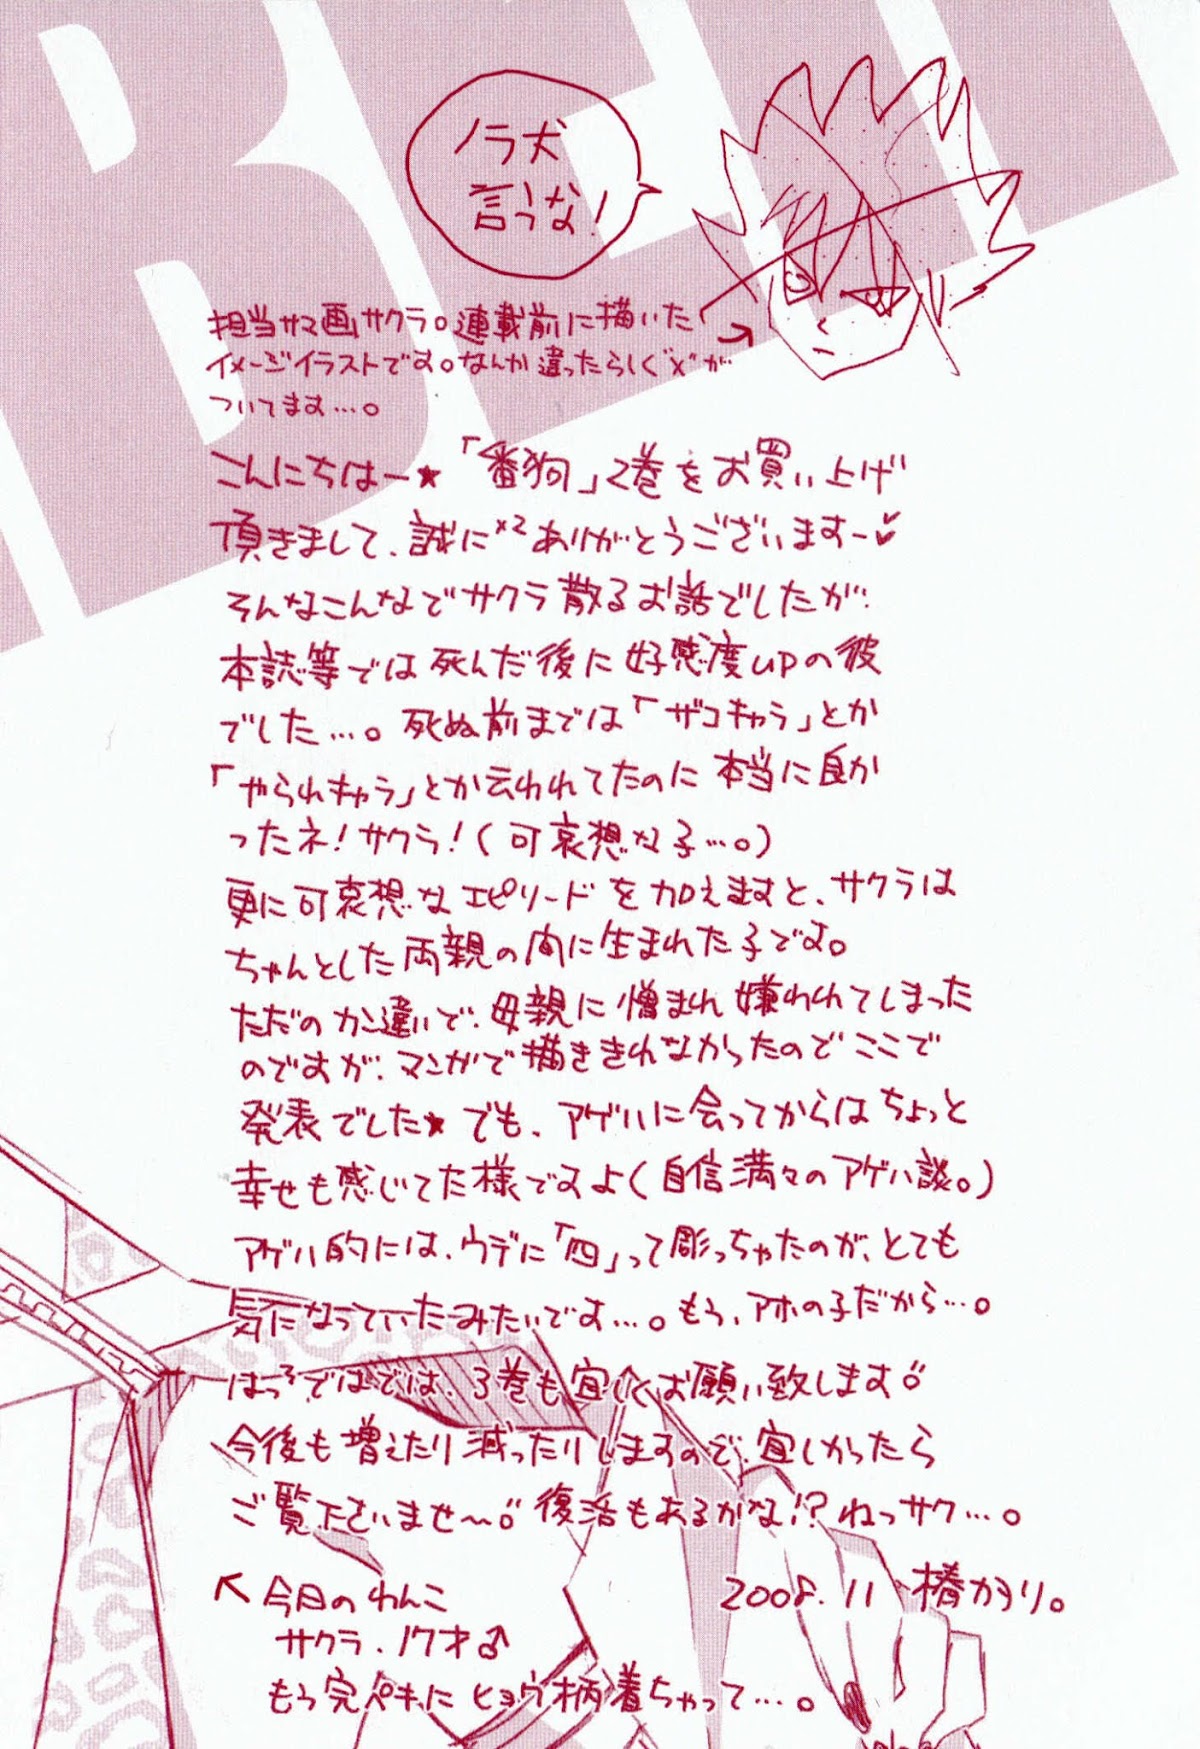 ノラ犬
言うな!
担当サマ画サクラ。連載前に描いた
イメージイラストです。なんか違ったらしく"×"が
ついてます…。
こんにちはー★「番狗」2巻をお買い上げ
頂きまして、誠に×2ありがとうございますー♥
そんなこんなでサクラ散るお話でしたが、
本誌等では死んだ後に好感度upの彼
でした…。死ぬ前までは「ザコキャラ」とか
「やられキャラ」とか云われてたのに本当に良か
ったネ!サクラ!(可哀想な子…。)
更に可哀想なエピソードを加えますと、サクラは
ちゃんとした両親の間に生まれた子です。
ただのカン違いで、母親に憎まれ嫌われてしまった
のですが、マンガで描ききれなかったのでここで
発表でした★でも、アゲハに会ってからはちょっと
幸せも感じてた様ですよ(自信満々のアゲハ談。)
アゲハ的には、ウデに「四」って彫っちゃたのが、とても
気になっていたみたいです…。もう、アホの子だから…。
はっ!ではでは、3巻も宜しくお願い致します
今後も増えたり減ったりしますので、宜しかったら
ご覧下さいませ〜 復活もあるかな!?ねっサク…。
2008.11 椿かをり。
↖今日のわんこ
サクラ・17才♂
もう完ペキにヒョウ柄着ちゃって…。